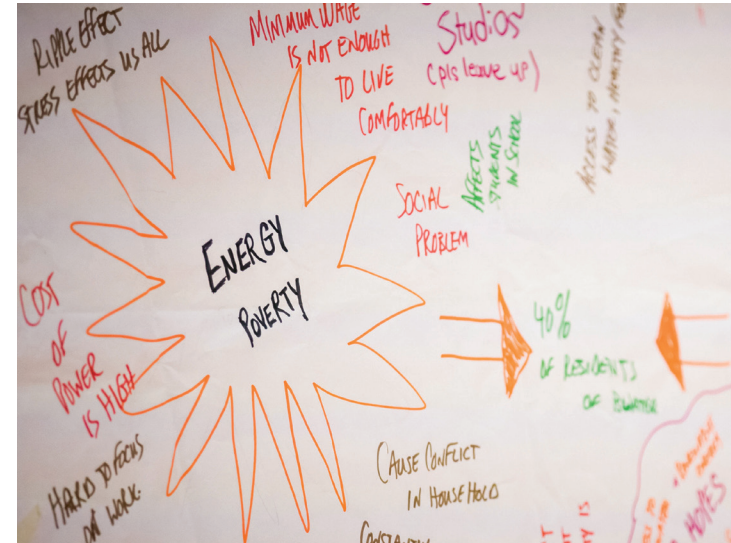 RIPPLE EFFECT
STRESS EFFECTS US ALL
MINIMUM WAGE
IS NOT ENOUGH
TO LIVE
COMFORTABLY
Studios
(pls leave up)
ACCESS TO CLEAN
WATER, HEALTHY
AFFECTS
STUDENTS
IN SCHOOL
SOCIAL
PROBLEM
ENERGY
POVERTY
COST
OF
POWER
IS HIGH
40%
OF RESIDENTS
OF
HARD TO FOCUS
ON WORK.
CAUSE CONFLICT
IN HOUSEHOLD
CONSTANTLY
HOPES
IS